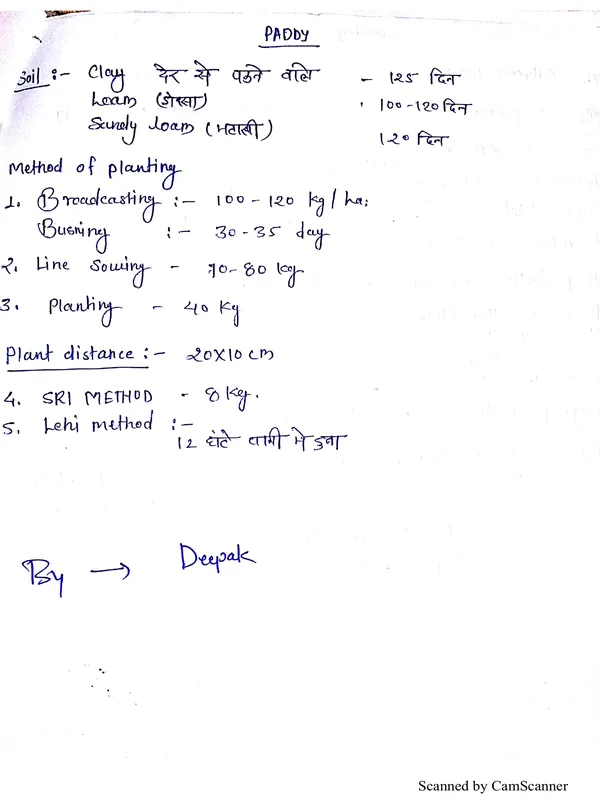 PADDY
Soil :- Clay देर से पकने वाले - 125 दिन
Loam (डोरसा) 100-120 दिन
Sandy loam (मटासी) 120 दिन
Method of planting
1. Broadcasting :- 100-120 kg/ha.
Busning :- 30-35 day
2. Line Sowing - 70-80 kg
3. Planting - 40 Kg
Plant distance :- 20X10 cm
4. SRI METHOD - 8 Kg.
5. Lehi method :-
12 घंटे पानी मे डुबा
By → Deepak
Scanned by CamScanner